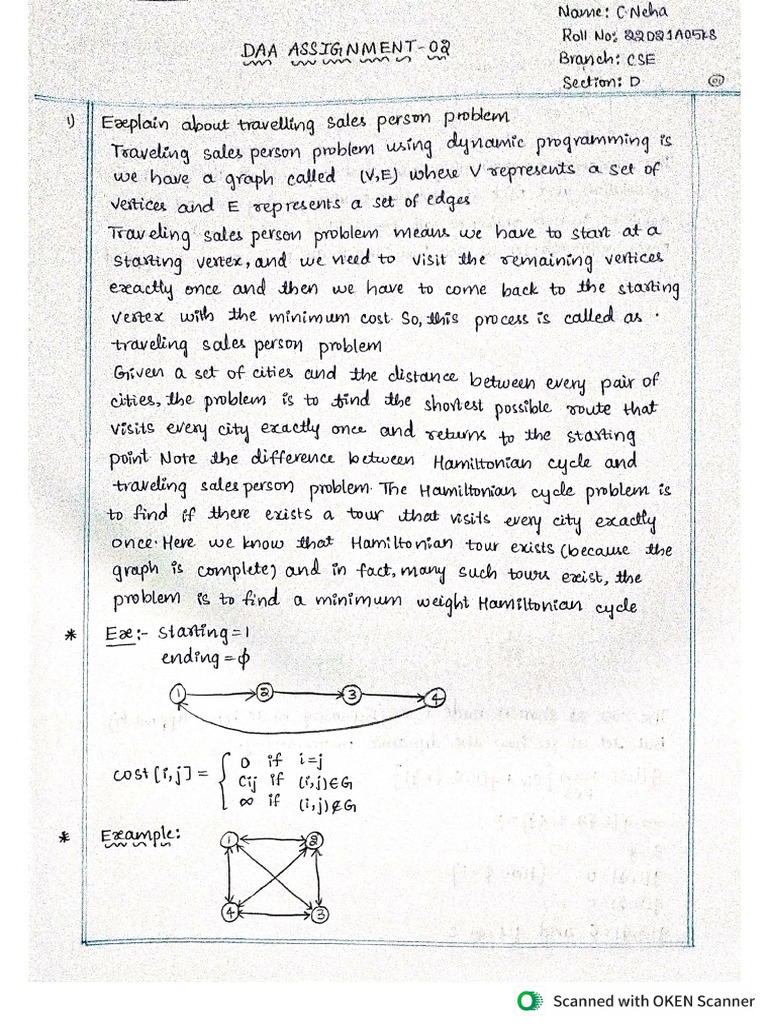 Name: C.Neha
Roll No: 22D21A05K8
Branch: CSE
Section: D
DAA ASSIGNMENT-02
1) Explain about travelling sales person problem
Traveling sales person problem using dynamic programming is
we have a graph called (V,E) where V represents a set of
vertices and E represents a set of edges
Traveling sales person problem means we have to start at a
starting vertex, and we need to visit the remaining vertices
exactly once and then we have to come back to the starting
vertex with the minimum cost. So, this process is called as
traveling sales person problem
Given a set of cities and the distance between every pair of
cities, the problem is to find the shortest possible route that
visits every city exactly once and returns to the starting
point. Note the difference between Hamiltonian cycle and
traveling sales person problem. The Hamiltonian cycle problem is
to find if there exists a tour that visits every city exactly
once. Here we know that Hamiltonian tour exists (because the
graph is complete) and in fact, many such tours exist, the
problem is to find a minimum weight Hamiltonian cycle
* Ex:- starting = 1
ending = ϕ
1 2 3 4
cost [i,j] = { 0 if i=j
Cij if (i,j)∈G
∞ if (i,j)∉G
* Example:
1 2
4 3
Scanned with OKEN Scanner